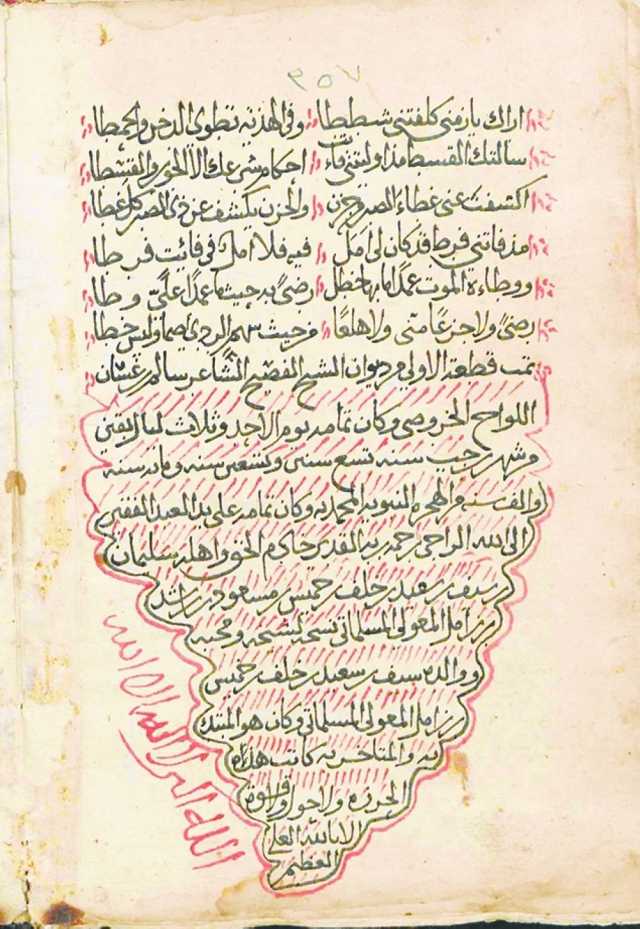 ٣٥٧
اراك يا زمني كلفتني شططا وفي الهدنه تطوى الدخن والخمطا
سالتك القسط مذ اوليتني احكام شرعك الا الجور والقسطا
اكشفت عني غطاء الصبر من حزن والحزن يكشف عن ذي الصبر كل غطا
مذ فاتني فرط قد كان لي امل فيه فلا امل في فائت فرطا
ووطاءة الموت عمدا رضى به حيثما عمدا علي وطا
رضى ولا جزعا مني ولا هلعا من حيث سهم الردى ليس خطا
تمت قطعة الاولى من ديوان الشيخ الفصيح الشاعر سالم بن غسان
اللواح الخروصي وكان تمامه يوم الاحد وثلاث ليال بقين
من شهر رجب سنه تسع سنين وتسعين سنه ومائه سنه
والف سنه من الهجره النبويه المحمديه وكان تمامه على يد العبد الفقير
الى الله الراجي رحمه ربه القدير خادم الحق واهله سليمان
بن سيف بن سعيد بن خلف بن خميس بن مسعود بن راشد
بن زامل المعولي المسلماتي نسخه لشيخه ومحبه
ووالده سيف بن سعيد بن خلف بن خميس
بن زامل المعولي المسلماتي وكان هو المبتدئ
به والمتاخر به كاتب هذه
الحروف ولا حول ولا قوة
الا بالله العلي
العظيم
الله اكبر لا اله الا الله